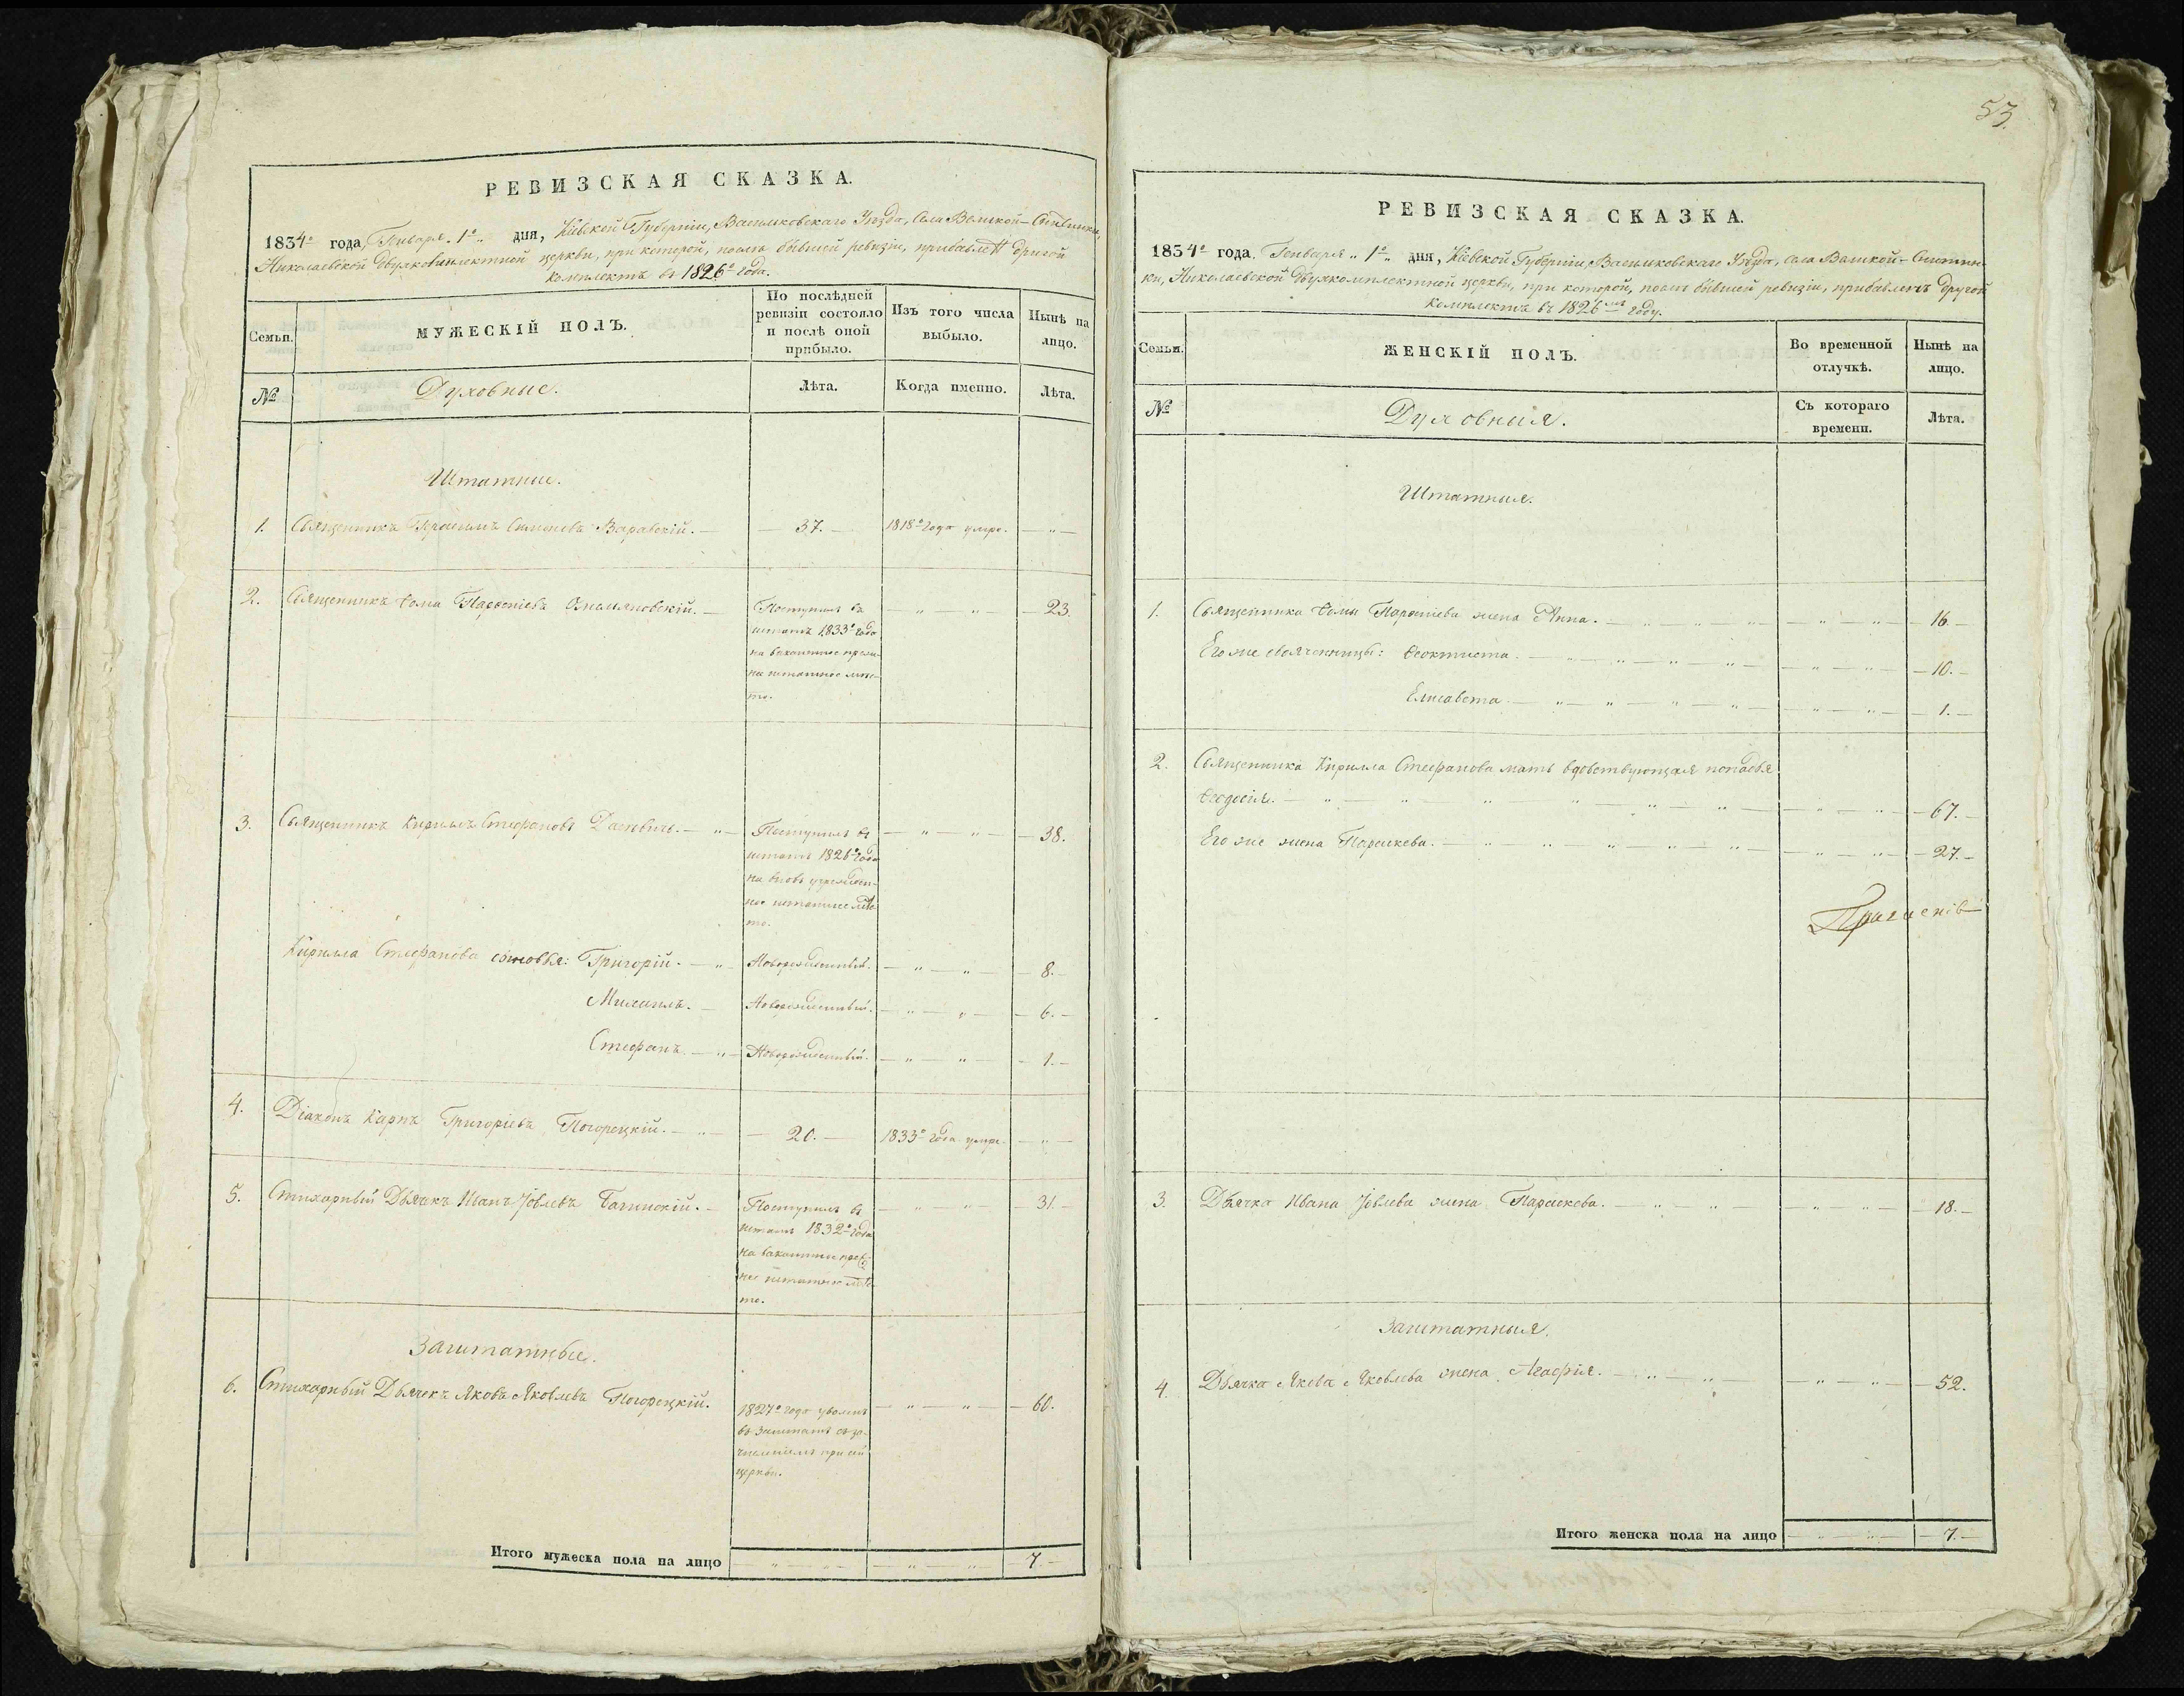 РЕВИЗСКАЯ СКАЗКА.
1834го года, Генваря 1го дня, Кіевской Губерніи, Васильковскаго Уѣзда, Села Великой-Снитинки,
Николаевской двукомплектной церкви, при которой, послѣ бывшей ревизіи, прибавленъ другой
комплектъ въ 1826го года.
Семьи.
МУЖЕСКІЙ ПОЛЪ.
По послѣдней
ревизіи состояло
и послѣ оной
прибыло.
Изъ того числа
выбыло.
Нынѣ на
лицо.
№
Духовные.
Лѣта.
Когда именно.
Лѣта.
Штатные.
1. Священникъ Герасимъ Симеоновъ Варавскій. — 37. — 1818го года умре. — „ —
2. Священникъ Ѳома Парѳеніевъ — Поступилъ въ — „ — „ — 23.
штатъ 1833го года
на вакантное преж-
не штатное мѣс-
то.
3. Священникъ Кириллъ Стефановъ — „ — Поступилъ въ — „ — „ — 38.
штатъ 1826го года
на вновь учрежден-
ное штатное мѣс-
то.
Кирилла Стефанова сыновья: Григорій. — „ Новорожденный. — „ — „ — 8. —
Михаилъ. — Новорожденный. — „ — „ — 6. —
Стефанъ. — „ — Новорожденный. — „ — „ — 1. —
4. Діаконъ Карпъ Григоріевъ Погорецкій. — „ — 20. — 1833го года умре. — „ —
5. Стихарный Дьячекъ Иванъ Іовлевъ — Поступилъ въ — „ — „ — 31. —
штатъ 1832го года
на вакантное преж-
нее штатное мѣс-
то.
Заштатные.
6. Стихарный Дьячекъ Яковъ Яковлевъ Погорецкій. 1827го года уволенъ — „ — „ — 60.
въ заштатъ съ за-
численіемъ при сей
церкви.
Итого мужеска пола на лицо — „ — „ — „ — „ — 7. —
53.
РЕВИЗСКАЯ СКАЗКА.
1834го года, Генваря „ 1го „ дня, Кіевской Губерніи, Васильковскаго Уѣзда, села Великой-Снитин-
ки, Николаевской двукомплектной церкви, при которой, послѣ бывшей ревизіи, прибавленъ другой
комплектъ въ 1826мъ году.
Семьи.
ЖЕНСКІЙ ПОЛЪ.
Во временной
отлучкѣ.
Нынѣ на
лицо.
№
Духовныя.
Съ котораго
времени.
Лѣта.
Штатныя.
1. Священника Ѳомы Парѳеніева жена Анна. — „ — „ — „ — „ — „ — 16. —
Его же своячницы: Ѳеоктиста. — „ — „ — „ — „ — „ — „ — 10. —
Елисавета. — „ — „ — „ — „ — „ — „ — 1. —
2. Священника Кирилла Стефанова мать вдовствующая попадья
Ѳеодосія. — „ — „ — „ — „ — „ — „ — „ — „ — 67. —
Его же жена Параскева. — „ — „ — „ — „ — „ — „ — „ — 27. —
3. Дьячка Ивана Іовлева жена Параскева. — „ — „ — „ — „ — 18. —
Заштатныя.
4. Дьячка Якова Яковлева жена Агафія. — „ — „ — „ — „ — 52.
Итого женска пола на лицо — „ — „ — 7. —